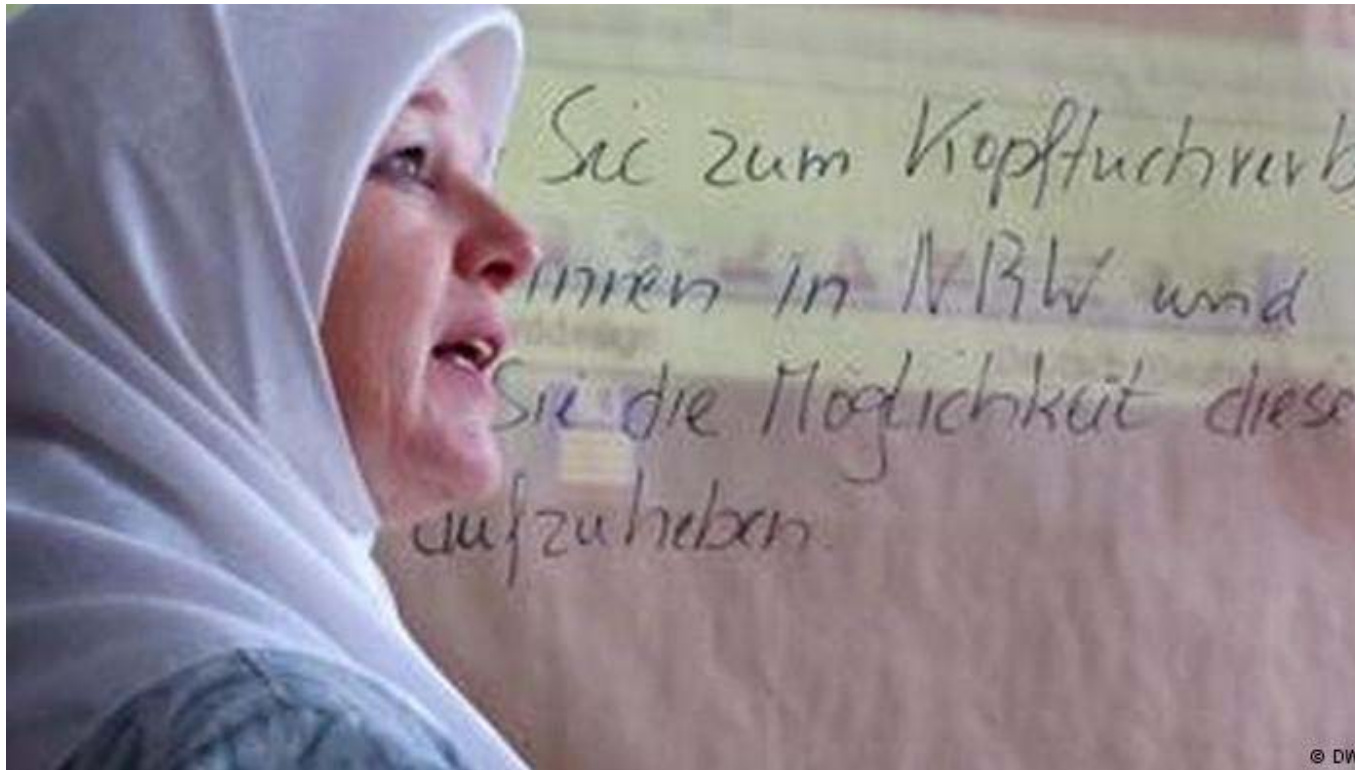 Sie zum Kopftuchverb
innen in NRW und
Sie die Möglichkeit diese
aufzuheben.
© DW